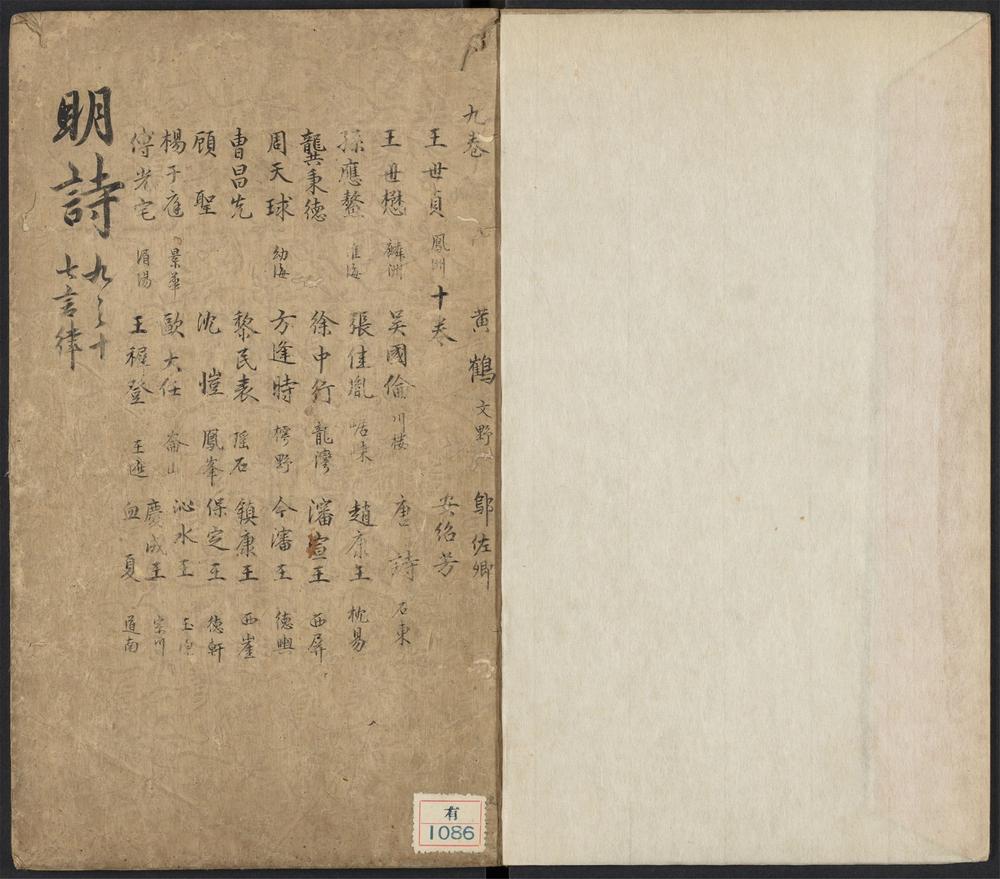 九卷
王世貞 鳳洲
王世懋 麟洲
孫應鰲 淮海
龔秉德
周天球 幼海
曹昌先
顧聖
楊子庭 景華
傅光宅
十卷
吳國倫 川樓
張佳胤 崌崍
徐中行 龍灣
方逢時 樗野
黎民表 瑶石
沈愷 鳳峯
歐大任 崙山
王穉登
黄鶴 文野
邬佐卿
安紹芳
唐詩 石東
趙康王 枕易
瀋宣王 西屏
今瀋王 德輿
鎮康王 西崖
保定王 德軒
沁水王
慶成王 宗川
血夏 道南
明詩 九之十
七言律
有
1086